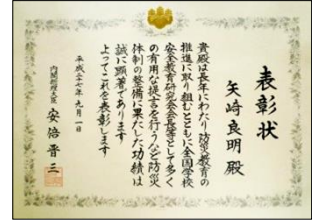 表彰状
矢崎良明殿
貴殿は長年にわたり防災教育の
推進に取り組むとともに全国学校
安全教育研究会会長等として多く
の有用な提言を行うなど防災
体制の整備に果たした功績は
誠に顕著であります
よってこれを表彰します
平成二十七年九月一日
内閣総理大臣 安倍晋三